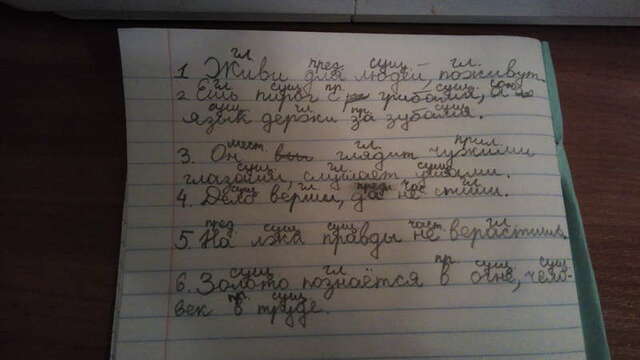 гл. пред. сущ. гл.
1. Живи для людей, поживут
гл. сущ. пр. сущ. союз
2. Ешь пирог с грибами, а
сущ. гл. пр. сущ.
язык держи за зубами.
мест. гл. прил.
3. Он глядит чужими
сущ. гл. сущ.
глазами, слушает ушами.
сущ. гл. пред. час. гл.
4. Дело верши, да не спеши.
пред. сущ. сущ. част. гл.
5. На лжа правды не верастишь.
сущ. гл. пр. сущ. сущ.
6. Золото познаётся в огне, чело-
пр. сущ.
век в труде.